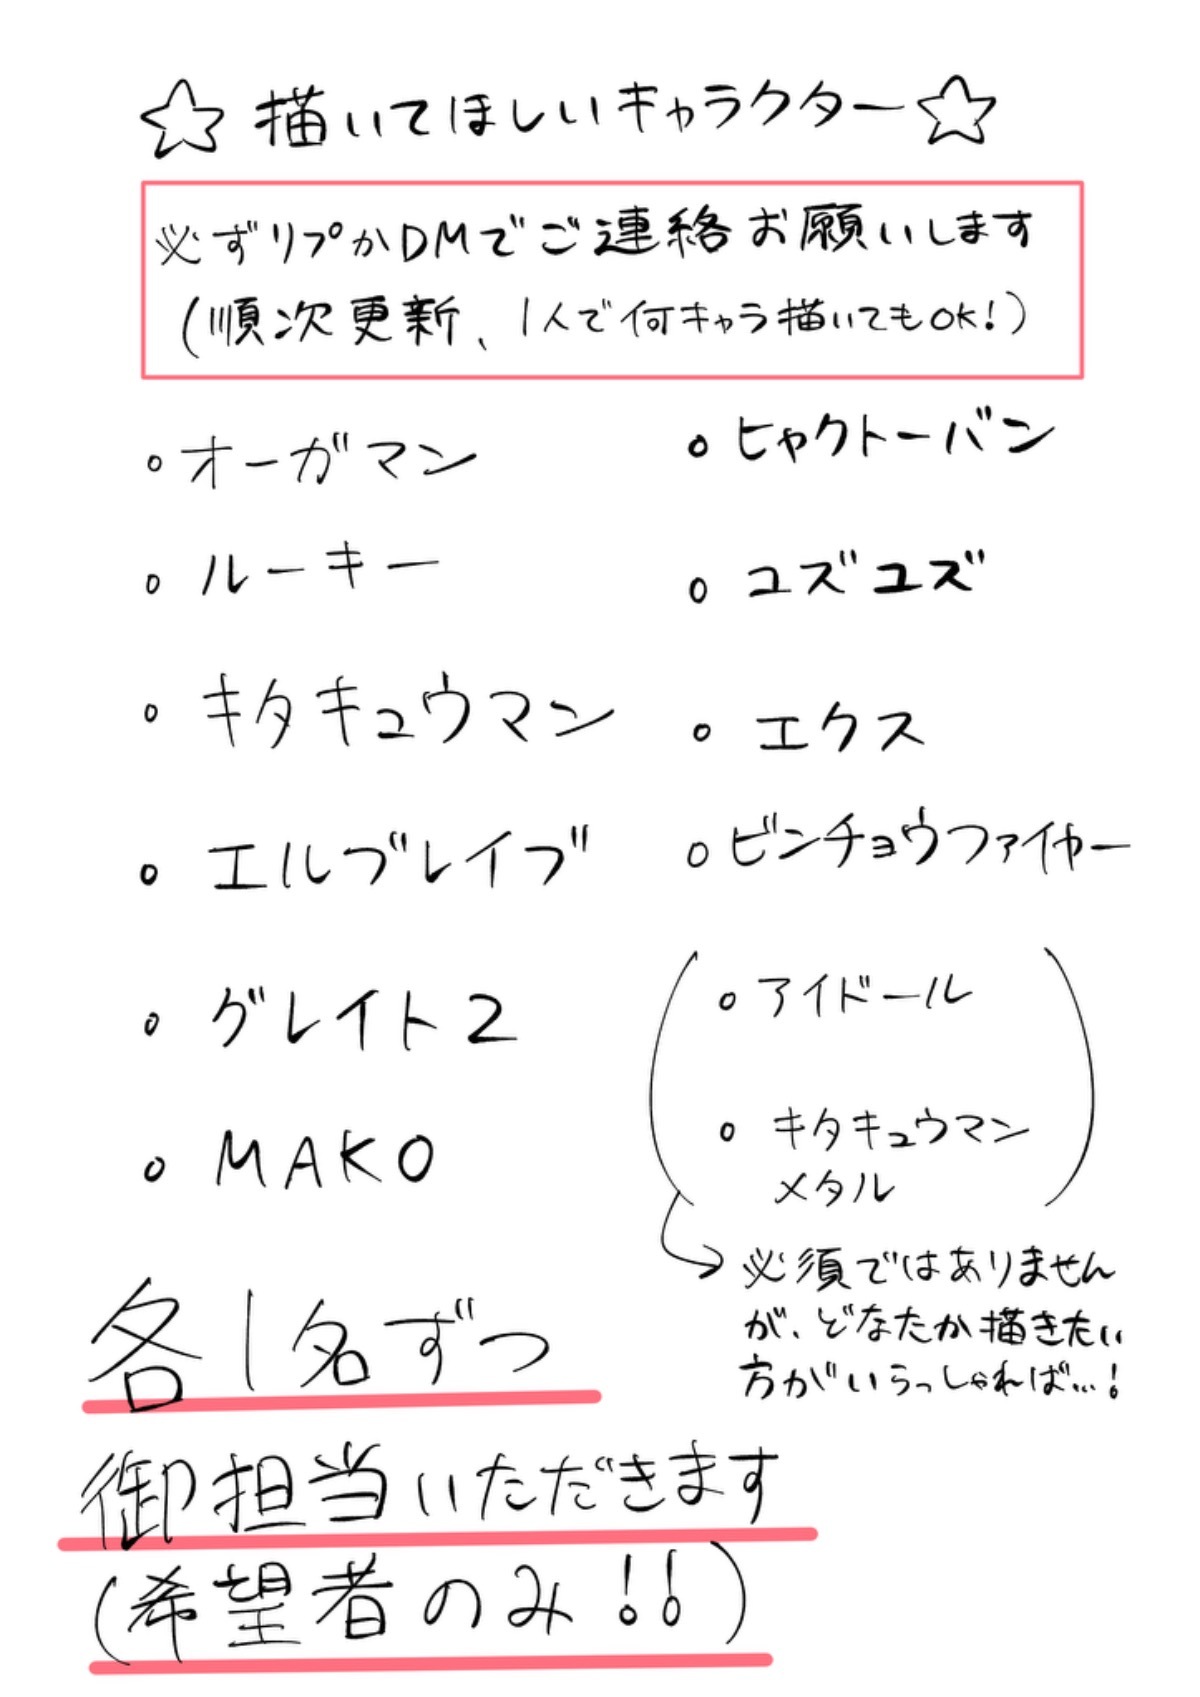 ☆描いてほしいキャラクター☆
必ずリプかDMでご連絡お願いします
(順次更新、1人で何キャラ描いてもOK!)
○オーガマン
○ルーキー
○キタキュウマン
○エルブレイブ
○グレイト2
○MAKO
○ヒャクトーバン
○ユズユズ
○エクス
○ビンチョウファイヤー
(○アイドール
○キタキュウマン
メタル)
→必須ではありません
が、どなたか描きたい
方がいらっしゃれば…!
各1名ずつ
御担当いただきます
(希望者のみ!!)